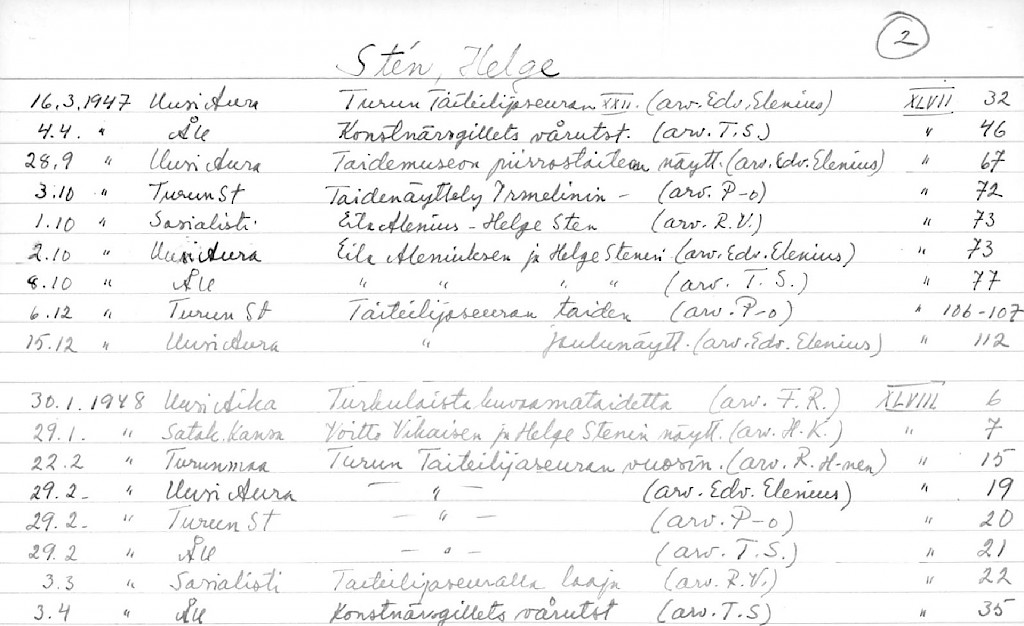 2
Stén, Helge
16.3.1947 Uusi Aura Turun Taiteilijaseuran XXII. (arv. Edv. Elenius) XLVII 32
4.4. " ÅU Konstnärsgillets vårutst. (arv. T.S.) " 46
28.9 " Uusi Aura Taidemuseon piirrostaiteen näytt. (arv. Edv. Elenius) " 67
3.10 " Turun St Taidenäyttely Irmelinin - (arv. P-o) " 72
1.10 " Sosialisti Eila Alenius - Helge Sten (arv. R.V.) " 73
2.10 " Uusi Aura Eila Aleniuksen ja Helge Stenin (arv. Edv. Elenius) " 73
8.10 " ÅU " " " " (arv. T.S.) " 77
6.12 " Turun St Taiteilijaseuran taiden (arv. P-o) " 106-107
15.12 " Uusi Aura " joulunäytt. (arv. Edv. Elenius) " 112
30.1.1948 Uusi Aika Turkulaista kuvaamataidetta (arv. F.R.) XLVIII 6
29.1. " Satak. Kansa Voitto Vikaisen ja Helge Stenin näytt. (arv. H.K.) " 7
22.2 " Turunmaa Turun Taiteilijaseuran vuosin. (arv. R. H-nen) " 15
29.2- " Uusi Aura — " — (arv. Edv. Elenius) " 19
29.2- " Turun St — " — (arv. P-o) " 20
29.2 " ÅU — " — (arv. T.S.) " 21
3.3 " Sosialisti Taiteilijaseuralla laaja (arv. R.V.) " 22
3.4 " ÅU Konstnärsgillets vårutst (arv. T.S) " 35